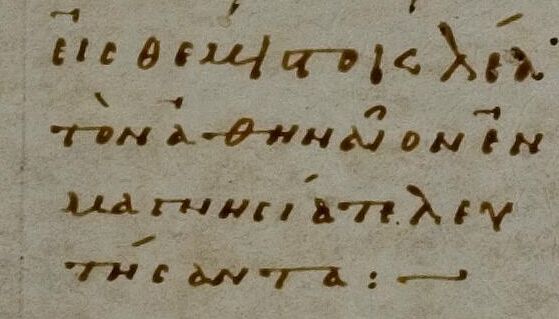 εἰς θεμιστοκλέα
τὸν ἀθηναῖον ἐν
μαγνησία τελευ
τήσαντα :—